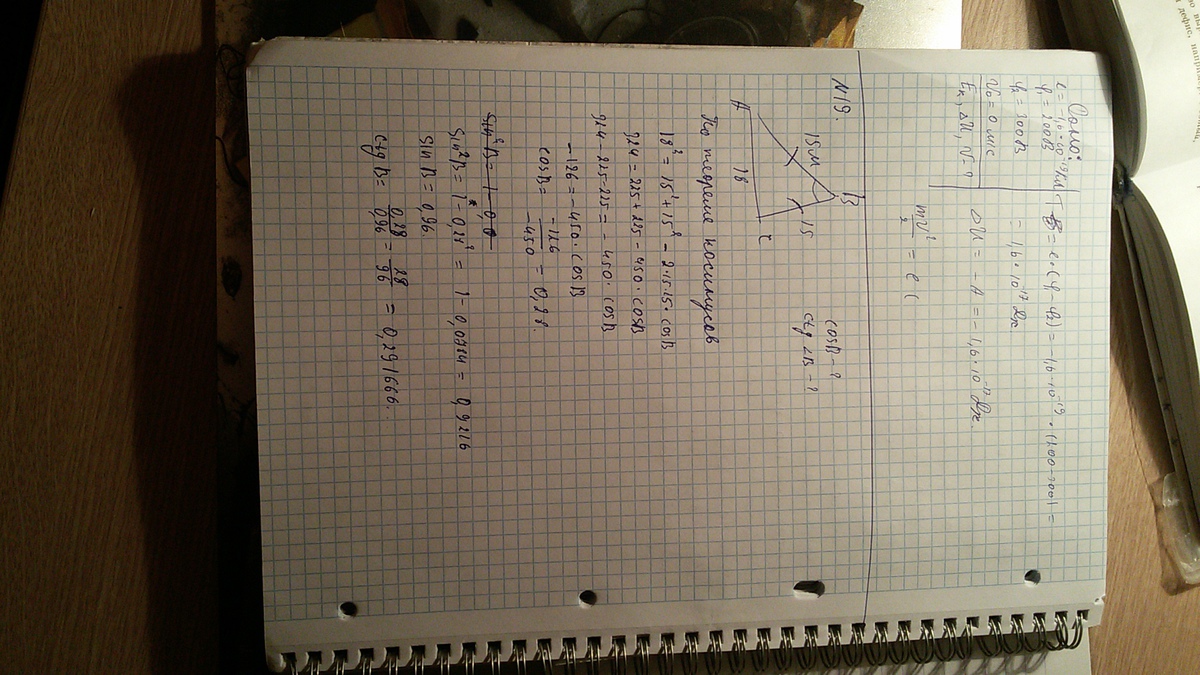 e = -1,6·10⁻¹⁹ Кл
φ₁ = 200В
φ₂ = 300В
V₀ = 0 м/с
Eк, ΔU, V - ?
= e·(φ-φ₂) = -1,6·10⁻¹⁹·(200-300) =
= 1,6·10⁻¹⁷ Дж.
ΔU = -A = -1,6·10⁻¹⁷ Дж.
mV²/2 = e (
N19.
B
15м
15
A
18
C
cosB - ?
ctg ∠B - ?
По теореме косинусов
18² = 15² + 15² - 2·15·15·cosB
324 = 225 + 225 - 450·cosB
324 - 225 - 225 = -450·cosB
-126 = -450·cosB
cosB = -126/-450 = 0,28.
sin²B = 1 - 0,0
sin²B = 1 - 0,28² = 1 - 0,0784 = 0,9216
sin B = 0,96.
ctg B = 0,28/0,96 = 28/96 = 0,291666..